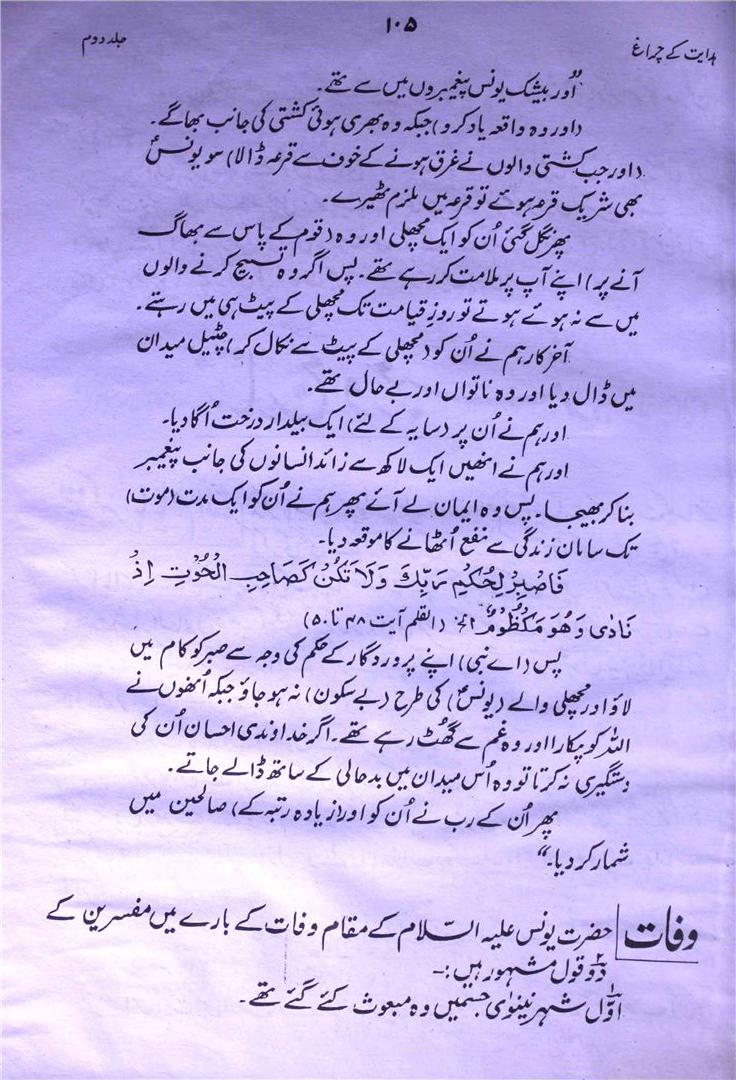 ۱۰۵
ہدایت کے چراغ
جلد دوم
"اور بیشک یونس پیغمبروں میں سے تھے۔
(اور وہ واقعہ یاد کرو) جبکہ وہ بھری ہوئی کشتی کی جانب بھاگے۔
(اور جب کشتی والوں نے غرق ہونے کے خوف سے قرعہ ڈالا) سو یونسؑ
بھی شریک قرعہ ہوئے تو قرعہ میں ملزم ٹھیرے۔
پھر نگل گئی اُن کو ایک مچھلی اور وہ (قوم کے پاس سے بھاگ
آنے پر) اپنے آپ پر ملامت کر رہے تھے۔ پس اگر وہ تسبیح کرنے والوں
میں سے نہ ہوئے ہوتے تو روزِ قیامت تک مچھلی کے پیٹ ہی میں رہتے۔
آخر کار ہم نے اُن کو (مچھلی کے پیٹ سے نکال کر) چٹیل میدان
میں ڈال دیا اور وہ ناتواں اور بے حال تھے۔
اور ہم نے اُن پر (سایہ کے لئے) ایک بیلدار درخت اُگا دیا۔
اور ہم نے انھیں ایک لاکھ سے زائد انسانوں کی جانب پیغمبر
بنا کر بھیجا۔ پس وہ ایمان لے آئے پھر ہم نے اُن کو ایک مدت (موت)
تک سامان زندگی سے نفع اُٹھانے کا موقعہ دیا۔
فَاصْبِرْ لِحُكْمِ رَبِّكَ وَلَا تَكُنْ كَصَاحِبِ الْحُوْتِ اِذْ
نَادٰى وَهُوَ مَكْظُوْمٌ الخ (القلم آیت ۴۸ تا ۵۰)
پس (اے نبی) اپنے پروردگار کے حکم کی وجہ سے صبر کو کام میں
لاؤ اور مچھلی والے (یونسؑ) کی طرح (بے سکون) نہ ہو جاؤ جبکہ اُنھوں نے
اللہ کو پکارا اور وہ غم سے گھُٹ رہے تھے۔ اگر خداوندی احسان اُن کی
دستگیری نہ کرتا تو وہ اُس میدان میں بدحالی کے ساتھ ڈالے جاتے۔
پھر اُن کے رب نے اُن کو اور (زیادہ رتبہ کے) صالحین میں
شمار کر دیا۔"
وفات
حضرت یونس علیہ السّلام کے مقام وفات کے بارے میں مفسرین کے
دو قول مشہور ہیں:۔
اوّل شہر نینوٰی جسمیں وہ مبعوث کئے گئے تھے۔